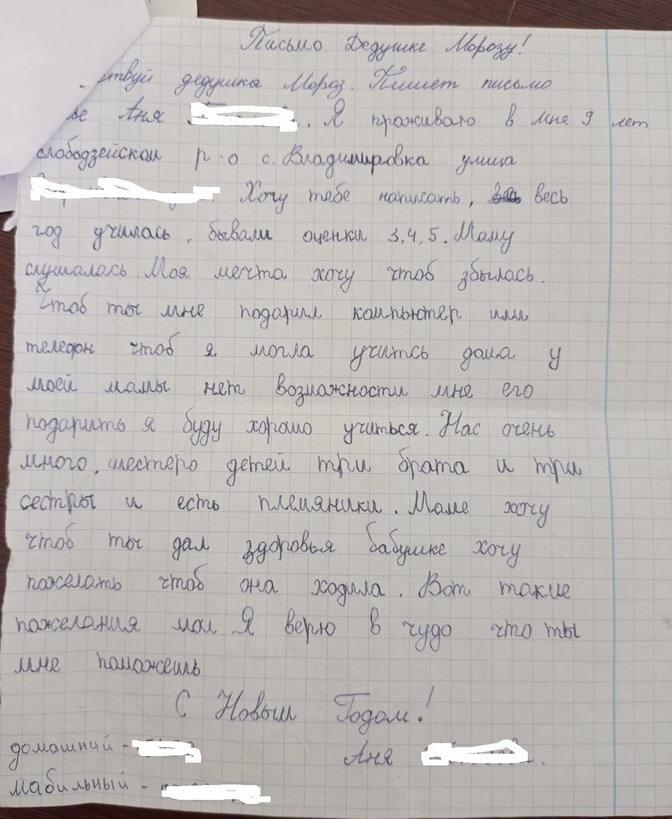 Письмо Дедушке Морозу!
ствуй дедушка Мороз. Пишет письмо
бе Аня. Я проживаю в мне 9 лет
слободзейском р-о с. Владимировка улица
Хочу тебе написать, весь
год училась, бывали оценки 3,4,5. Маму
слушалась. Моя мечта хочу чтоб збылась.
Чтоб ты мне подарил компьютер или
телефон чтоб я могла учитсь дома у
моей мамы нет возможности мне его
подарить я буду хорошо учиться. Нас очень
много, шестеро детей три брата и три
сестры и есть племяники. Маме хочу
чтоб ты дал здоровья бабушке хочу
пожелать чтоб она ходила. Вот такие
пожелания мои. Я верю в чудо что ты
мне поможешь
С Новым Годом!
домашний -
Аня
мабильный -